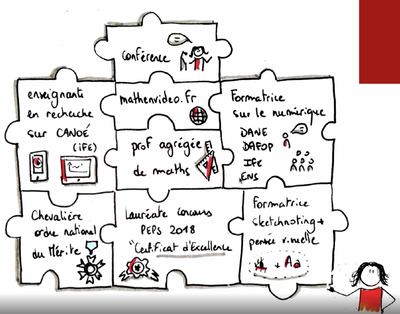 conférence
mathenvideo.fr
prof agrégée
de maths
enseignant
en recherche
sur CANOÉ
(iFÉ)
Formatrice
sur le numérique
DANE
DAFOP
IFE
ENS
Chevalière
ordre national
du Mérite
Lauréate concours
PEPS 2018
"Certificat d'Excellence
Formatrice
sketchnoting +
pensée visuelle
+ Aa